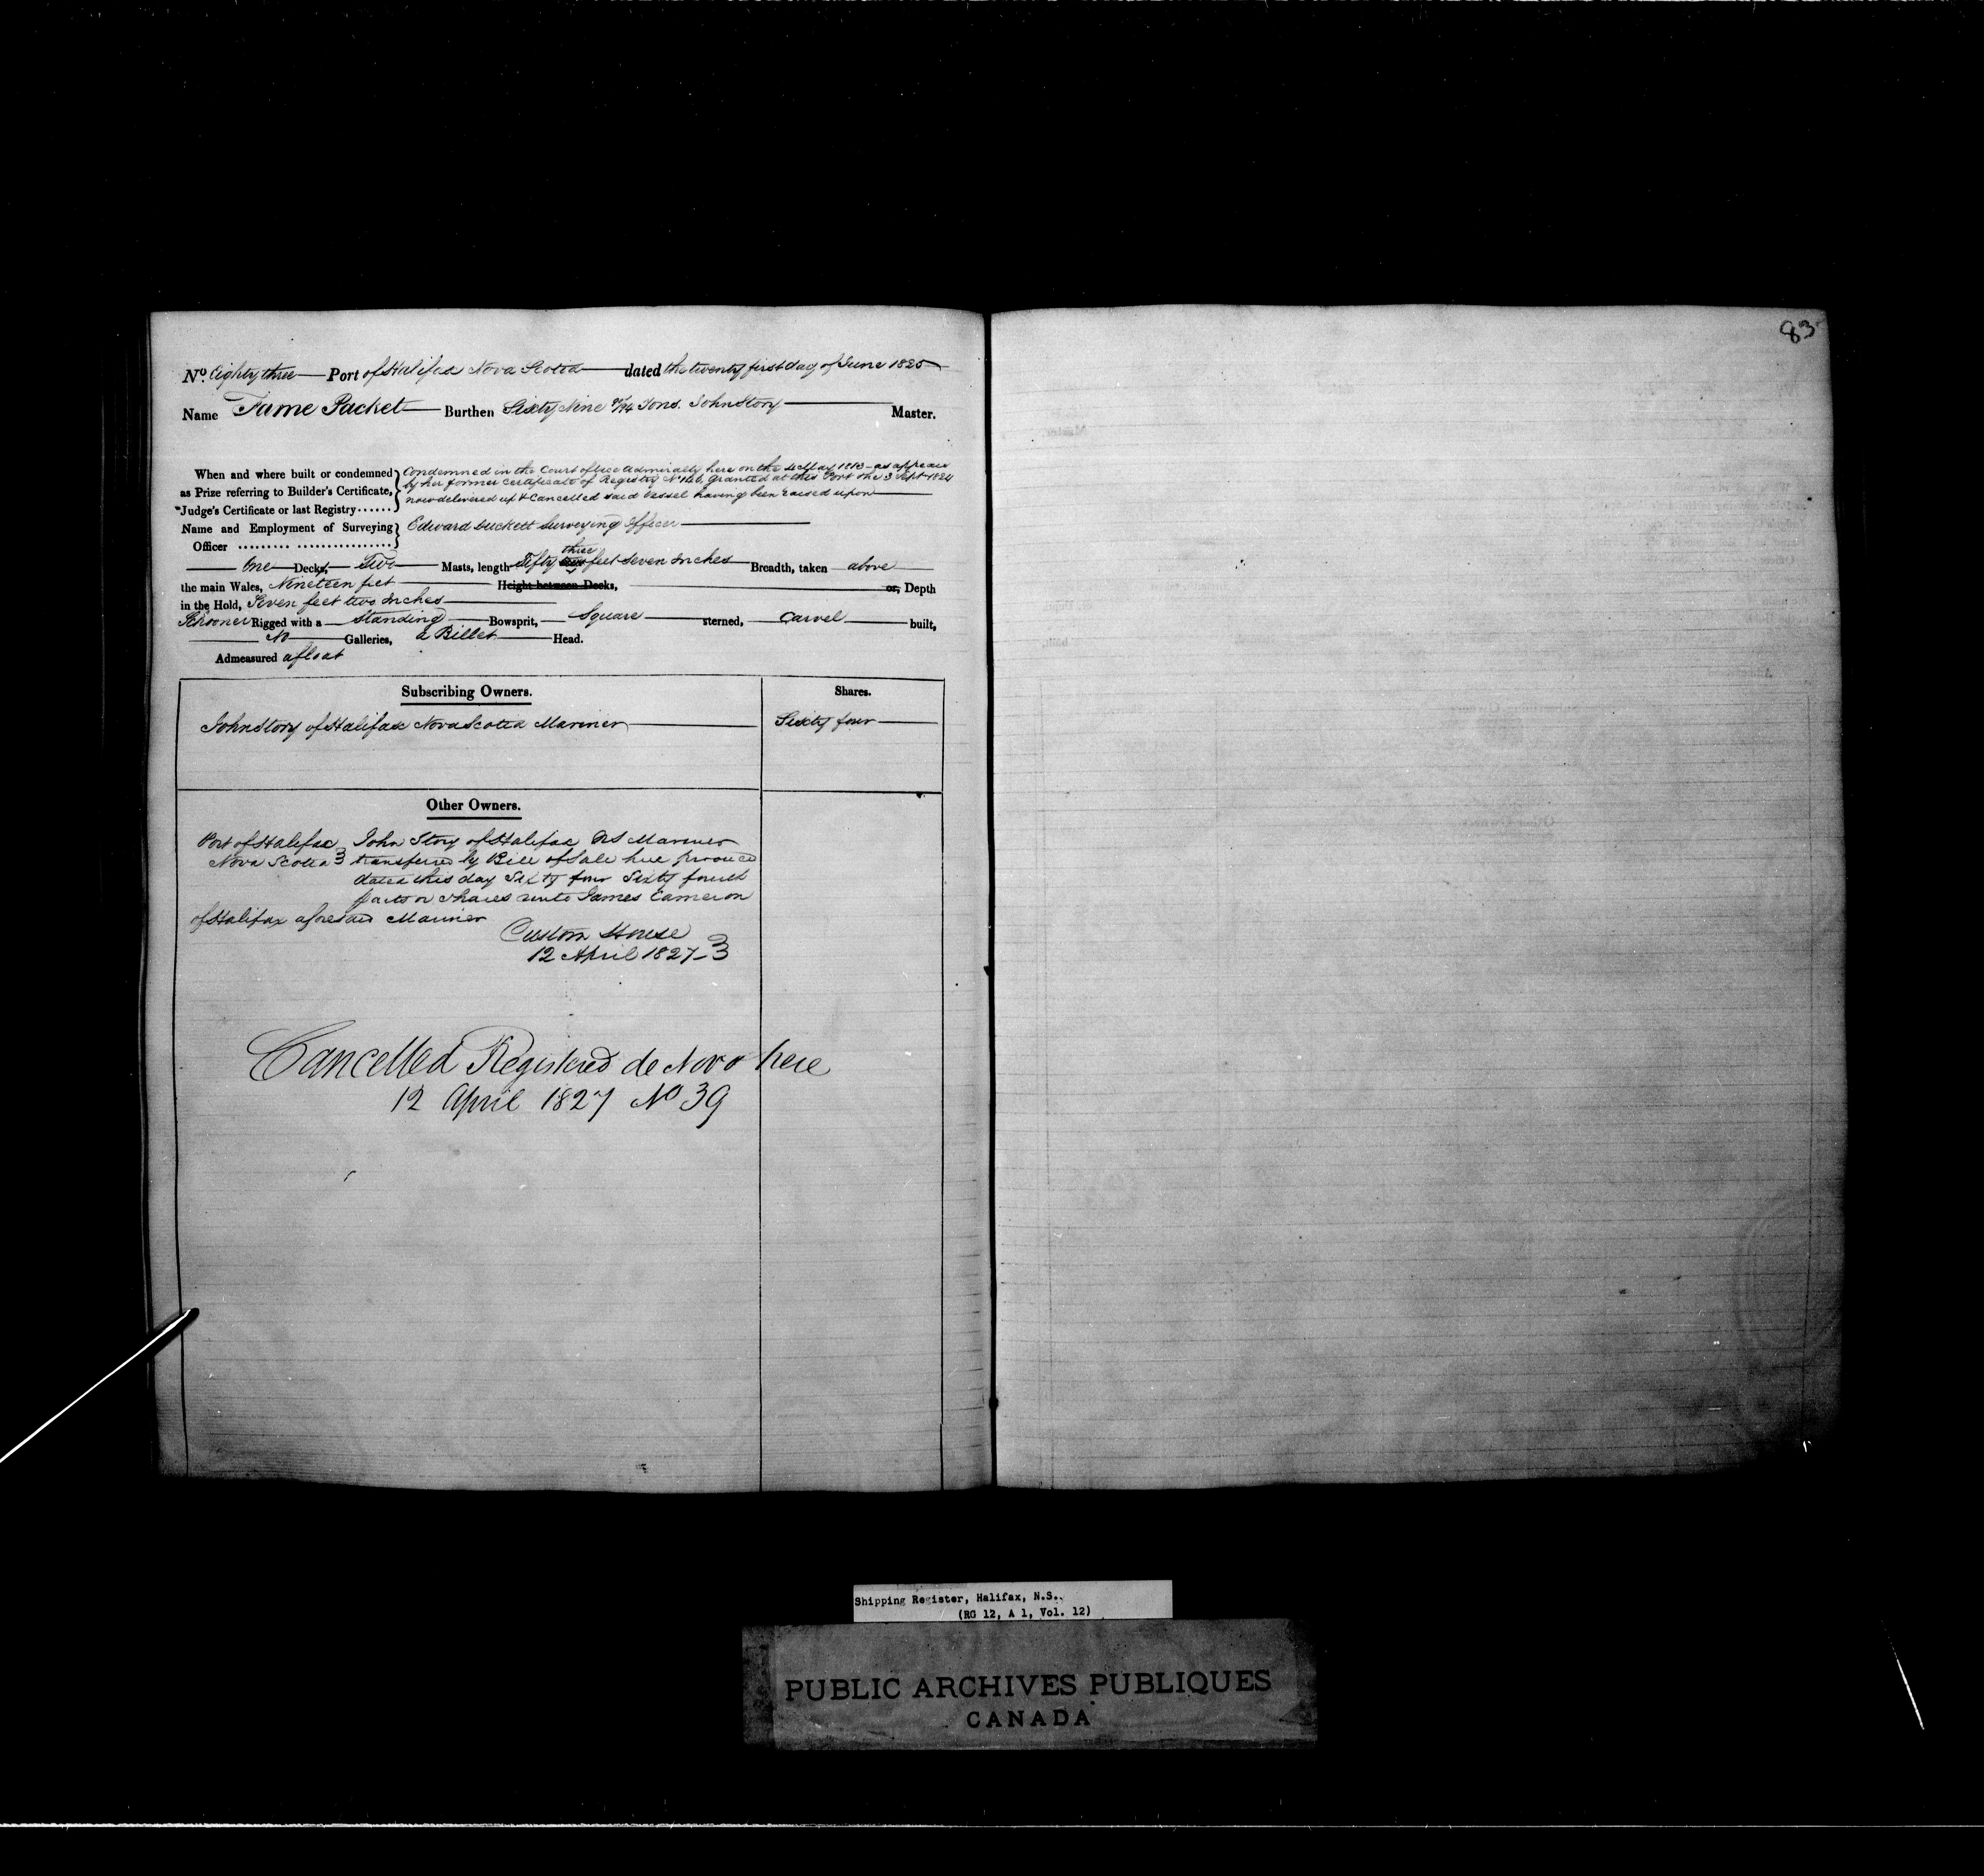 83
No. Eighty three Port of Halifax Nova Scotia dated the twenty first day of June 1825
Name Fame Packet Burthen Sixty Nine /94 Tons. John Story Master.
When and where built or condemned
as Prize referring to Builder's Certificate,
Judge's Certificate or last Registry......
Condemned in the Court of Vice Admiralty here on the 4 May 1813 as appears
by her former Certificate of Registry No 146 granted at this Port the 3 Sept 1824
now delivered up & Cancelled said Vessel having been raised upon
Name and Employment of Surveying
Officer ......... ................
Edward Duckett Surveying Officer
three
One Decks, Two Masts, length Fifty feet seven Inches Breadth, taken above
the main Wales, Nineteen feet Height between Decks, or, Depth
in the Hold, Seven feet two Inches
Schooner Rigged with a Standing Bowsprit, Square sterned, Carvel built,
No Galleries, a Billet Head.
Admeasured afloat
Subscribing Owners. Shares.
John Story of Halifax Nova Scotia Mariner Sixty four
Other Owners.
Port of Halifax John Story of Halifax NS Mariner
Nova Scotia transferred by Bill of Sale here produced
dated this day Sixty four Sixty fourth
parts or shares unto James Cameron
of Halifax aforesaid Mariner
Custom House
12 April 1827
Cancelled Registered de Novo here
12 April 1827 No 39
Shipping Register, Halifax, N.S.
(RG 12, A 1, Vol. 12)
PUBLIC ARCHIVES PUBLIQUES
CANADA